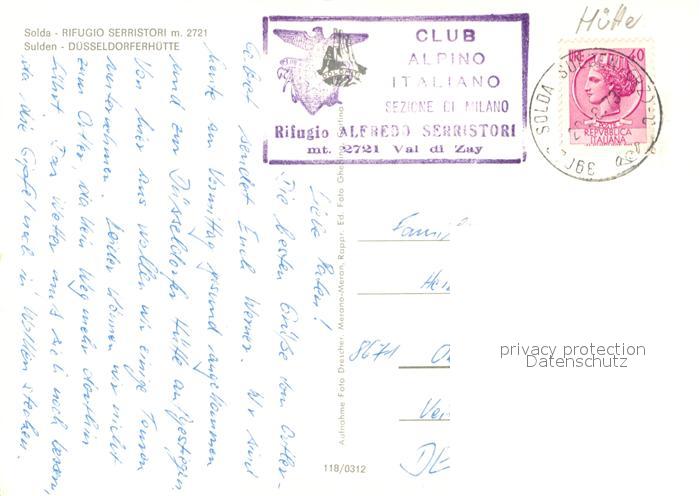 Solda - RIFUGIO SERRISTORI m. 2721
Sulden - DÜSSELDORFERHÜTTE
CLUB
ALPINO
ITALIANO
SEZIONE DI MILANO
Rifugio ALFREDO SERRISTORI
mt. 2721 Val di Zay
Hütte
LIRE 40
REPVBBLICA
ITALIANA
SOLDA
390
Liebe Paten!
Die besten Grüße vom Ortler-
Gebiet sendet Euch Werner. Wir sind
heute am Vormittag gesund angekommen
und zur Düsseldorfer Hütte aufgestiegen.
Von hier aus wollen wir einige Touren
unternehmen. Leider können wir nicht
zum Ortler, da kein Weg mehr dorthin
führt. Das Wetter muß sich noch bessern,
da die Gipfel noch in Wolken stecken.
Aufnahme Foto Drescher, Merano-Meran, Rappr. Ed. Foto
118/0312
Fami
Hei
8671
DE
privacy protection
Datenschutz